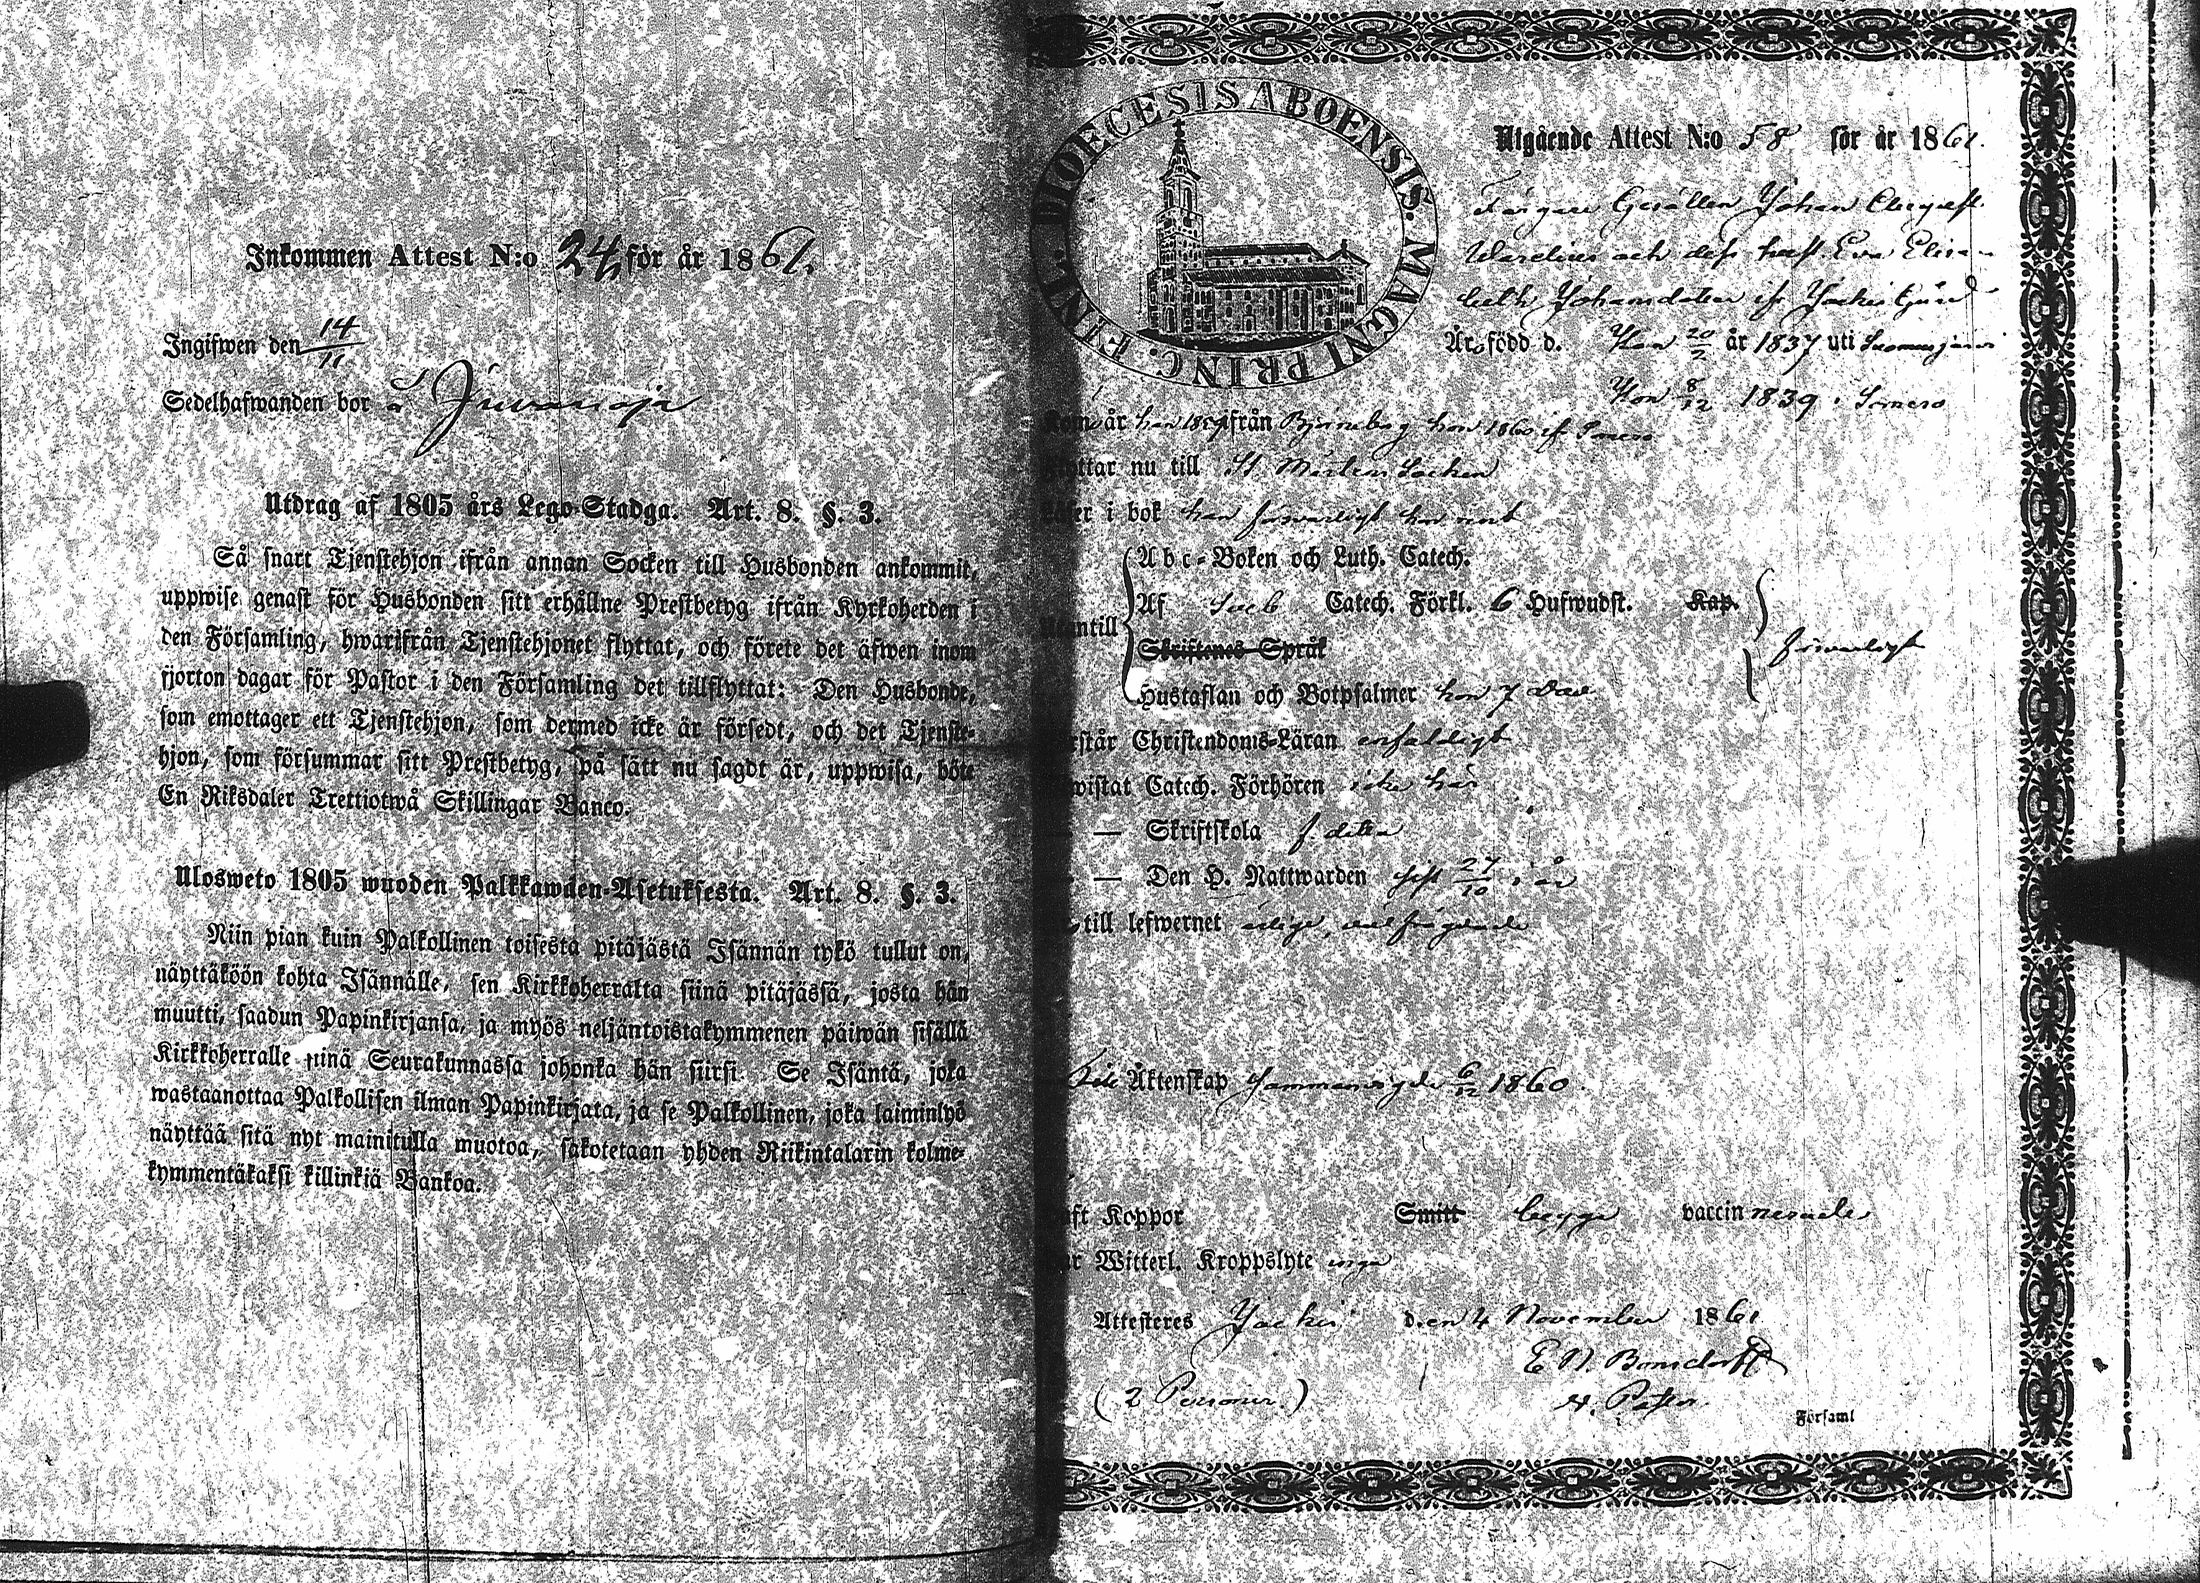 Inkommen Attest N:o 24, för år 1861.
Ingifwen den 14/11
Sedelhafwanden bor å Juvanoja
Utdrag af 1805 års Lego-Stadga. Art. 8. §. 3.
Så snart Tjenstehjon ifrån annan Socken till Husbonden ankommit,
uppwise genast för Husbonden sitt erhållne Prestbetyg ifrån Kyrkoherden i
den Församling, hwarifrån Tjenstehjonet flyttat, och förete det äfwen inom
fjorton dagar för Pastor i den Församling det tillflyttat: Den Husbonde,
som emottager ett Tjenstehjon, som dermed icke är försedt, och det Tjenste-
hjon, som försummar sitt Prestbetyg, på sätt nu sagdt är, uppwisa, böte
En Riksdaler Trettiotwå Skillingar Banco.
Ulosweto 1805 wuoden Palkkawäen-Asetuksesta. Art. 8. §. 3.
Niin pian kuin Palkollinen toisesta pitäjästä Isännän tykö tullut on,
näyttäköön kohta Isännälle, sen Kirkkoherralta siinä pitäjässä, josta hän
muutti, saadun Papinkirjansa, ja myös neljäntoistakymmenen päiwän sisällä
Kirkkoherralle siinä Seurakunnassa johonka hän siirsi. Se Isäntä, joka
wastaanottaa Palkollisen ilman Papinkirjata, ja se Palkollinen, joka laiminlyö
näyttää sitä nyt mainitulla muotoa, sakotetaan yhden Riikintalarin kolme-
kymmentäkaksi killinkiä Bankoa.
DIOECESIS ABOENSIS. MAGNI PRINC. FINL.
Utgående Attest N:o 58 för år 1861.
Färgare Gesällen Johan August
Warelius och dess hust. Eva Elisa-
beth Johansdotter if. Jockis Gård
Är född d. Han 20/2 år 1837 uti Suomusjärvi
Hon 8/12 1839 i Somero
Kom år han från Björneborg hon 1860 if. Somero
flyttar nu till St Mårtens Socken
Läser i bok han försvarligt hon
Utantill
Abc-Boken och Luth. Catech.
Af Sveb Catech. Förkl. 6 Hufwudst. Kap.
Skriftenes Språk
försvarligt
Hustaflan och Botpsalmer hon 7 Dav
förstår Christendoms-Läran enfaldigt
bewistat Catech. Förhören icke här
— — Skriftskola f. detta
— — Den H. Nattwarden sist 27/10 i år
till lefwernet ärlige, väl frägdade
Till Äktenskap Sammanvigde 6/12 1860.
haft Koppor Smitt begge vaccinnerade
har Witterl. Kroppslyte inga
Attesteres Jockis den 4 November 1861
E N Bonsdorff
(2 Personer.) v. Pastor.
Församl